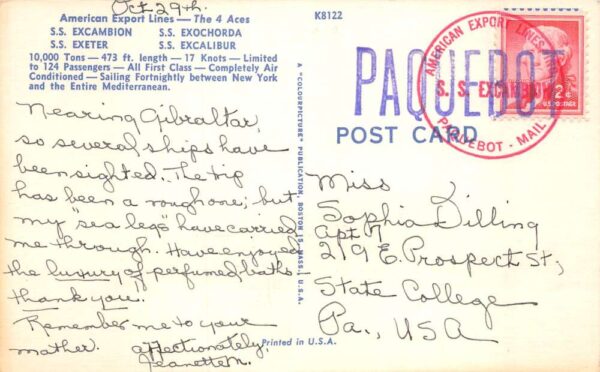 Oct 29th.
American Export Lines — The 4 Aces
S.S. EXCAMBION S.S. EXOCHORDA
S.S. EXETER S.S. EXCALIBUR
10,000 Tons — 473 ft. length — 17 Knots — Limited
to 124 Passengers — All First Class — Completely Air
Conditioned — Sailing Fortnightly between New York
and the Entire Mediterranean.
Nearing Gibraltar,
so several ships have
been sighted. The trip
has been a rough one; but
my "sea legs" have carried
me through. Have enjoyed
the luxury of perfumed baths -
thank you.
Remember me to your
mother. affectionately,
Jeanette M.
A "COLOURPICTURE" PUBLICATION, BOSTON 15, MASS., U.S.A.
Printed in U.S.A.
K8122
PAQUEBOT
AMERICAN EXPORT LINES
S. S. EXCAMBION
PAQUEBOT - MAIL
2¢
U.S. POSTAGE
POST CARD
Miss
Sophia Dilling
Apt 7
219 E. Prospect St,
State College
Pa., USA